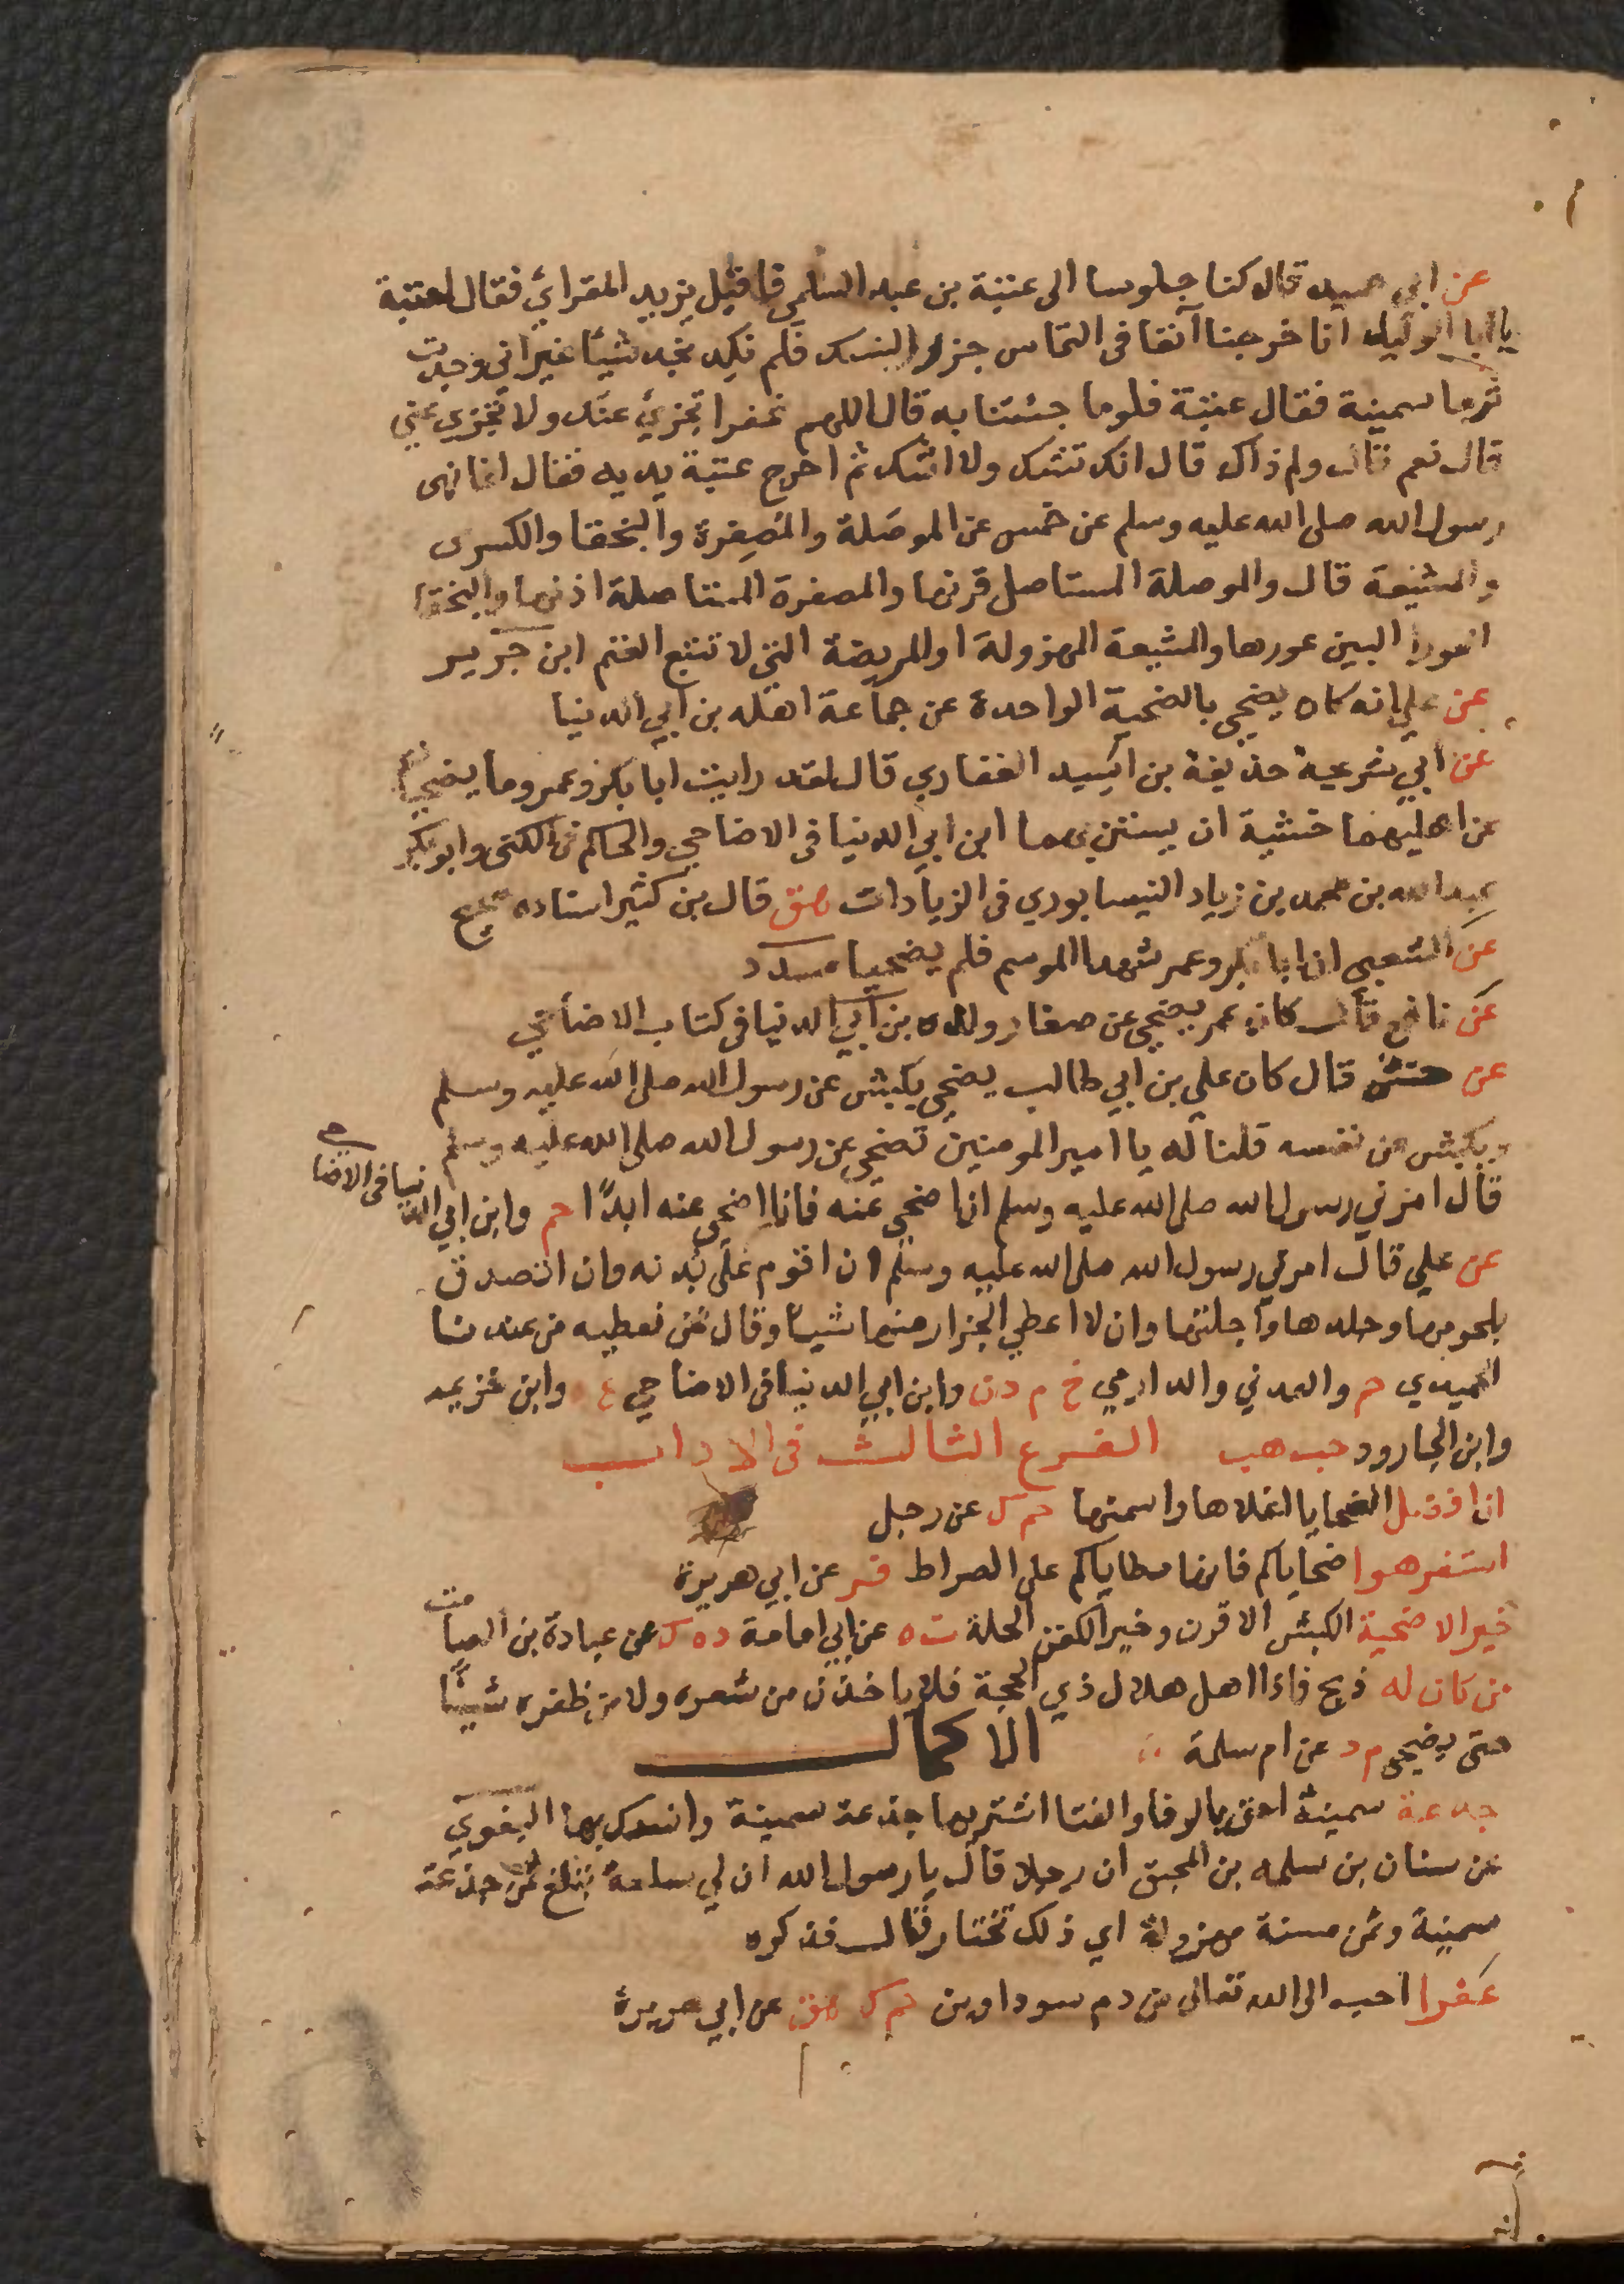 عن ابي حميد قال كنا جلوسا الى عتبة بن عبد السلمي فاقبل يزيد المقرائي فقال لعتبة
يا ابا الوليد انا خرجنا آنفا في التماس جزر النسك فلم نكد نجد شيئا غير اني وجدت
ثرما سمينة فقال عتبة فلوما جئتنا به قال اللهم غفرا تجزئ عنك ولا تجزي عني
قال نعم قال ولم ذاك قال انك تشك ولا اشك ثم اخرج عتبة يديه فقال انما نهى
رسول الله صلى الله عليه وسلم عن خمس عن الموصلة والمصفرة والبخقا والكسرى
والمشيعة قال والموصلة المستاصل قرنها والمصفرة المستاصلة اذنها والبخقا
العورا البين عورها والمشيعة المهزولة او المريضة التي لا تتبع الغنم ابن جرير
عن علي انه كان يضحي بالضحية الواحدة عن جماعة اهله بن ابي الدنيا
عن ابي شريحة حذيفة بن اسيد الغفاري قال لقد رايت ابا بكر وعمر وما يضحيان
عن اهليهما خشية ان يستن بهما ابن ابي الدنيا في الاضاحي والحاكم في الكنى وابو بكر
عبد الله بن محمد بن زياد النيسابوري في الزيادات هق قال بن كثير اسناده صحيح
عن الشعبي ان ابا بكر وعمر شهدا الموسم فلم يضحيا مسدد
عن نافع قال كان عمر يضحي عن صغار ولده بن ابي الدنيا في كتاب الاضاحي
عن حنش قال كان علي بن ابي طالب يضحي بكبش عن رسول الله صلى الله عليه وسلم
وبكبش عن نفسه قلنا له يا امير المومنين تضحي عن رسول الله صلى الله عليه وسلم
قال امرني رسول الله صلى الله عليه وسلم ان اضحي عنه فانا اضحي عنه ابدًا حم وابن ابي الدنيا في الاضاحي
عن علي قال امرني رسول الله صلى الله عليه وسلم ان اقوم على بدنه وان اتصدق
بلحومها وجلدها واجلتها وان لا اعطي الجزار منها شيئا وقال نحن نعطيه من عندنا
الحميدي حم والعدني والدارمي خ م د ن وابن ابي الدنيا في الاضاحي ع ه وابن خزيمه
وابن الجارود حب هب الفرع الثالث في الاداب
ان افضل الضحايا اغلاها واسمنها حم ك عن رجل
استفرهوا ضحاياكم فانها مطاياكم على الصراط فر عن ابي هريرة
خير الاضحية الكبش الاقرن وخير الكفن الحلة ت ه عن ابي امامة د ه ك عن عبادة بن الصامت
من كان له ذبح فاذا اهل هلال ذي الحجة فلا ياخذن من شعره ولا من ظفره شيئًا
حتى يضحي م د عن ام سلمة الاكمال
جدعة سمينة احق بالوفا والغنا اشتر بها جذعة سمينة وانسك بها البغوي
عن سنان بن سلمه بن المحبق ان رجلا قال يا رسول الله ان لي سلعة تبلغ ثمن جذعة
سمينة وثمن مسنة مهزولة اي ذلك تختار قال فذكره
عفرا احب الى الله تعالى من دم سوداوين حم ك هق عن ابي هريرة